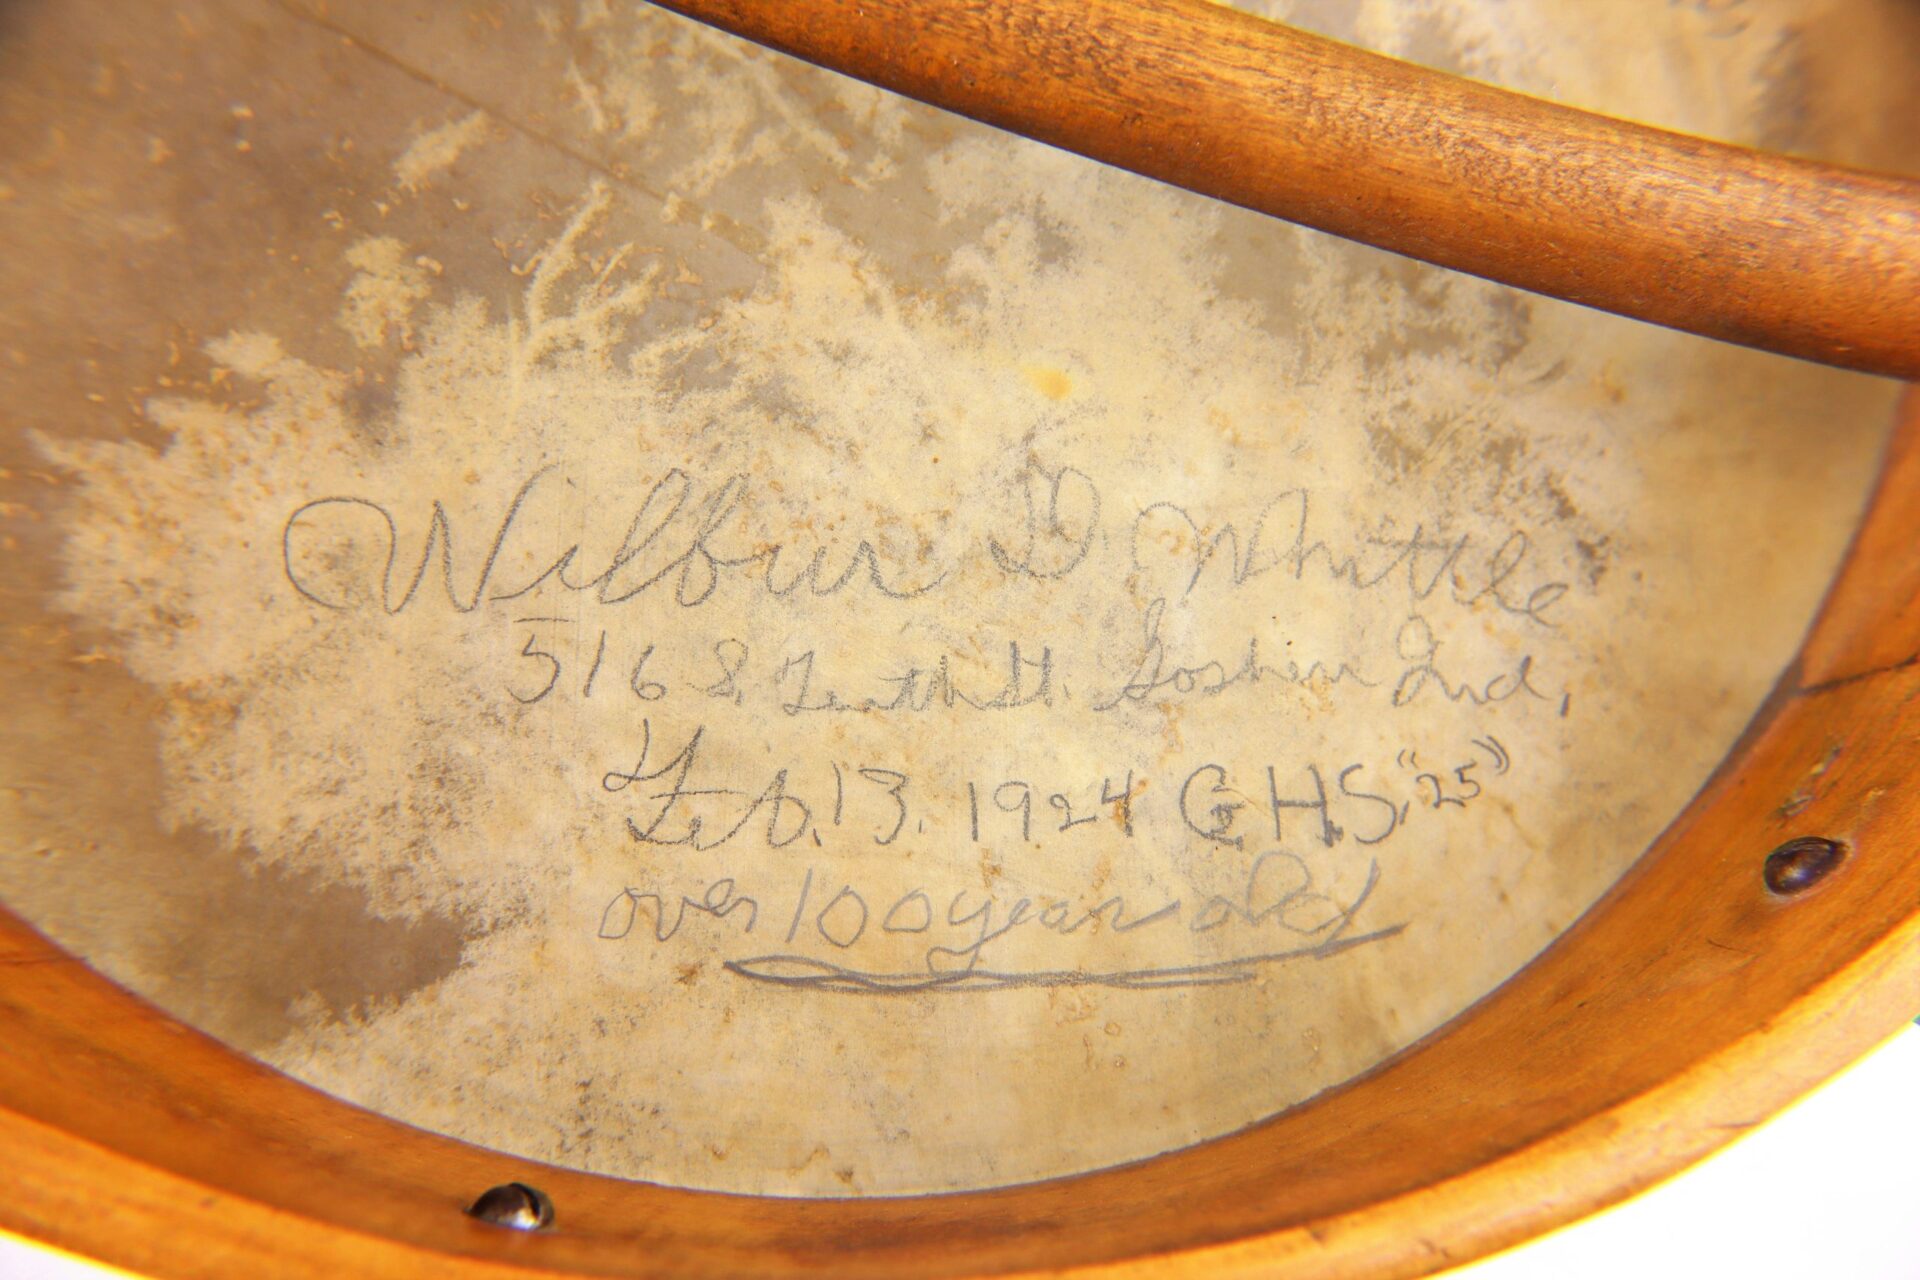 Wilbur D. Whittle
516 S. Tenth St. Goshen Ind,
Feb. 13. 1924 G.H.S. "25"
over 100 year old